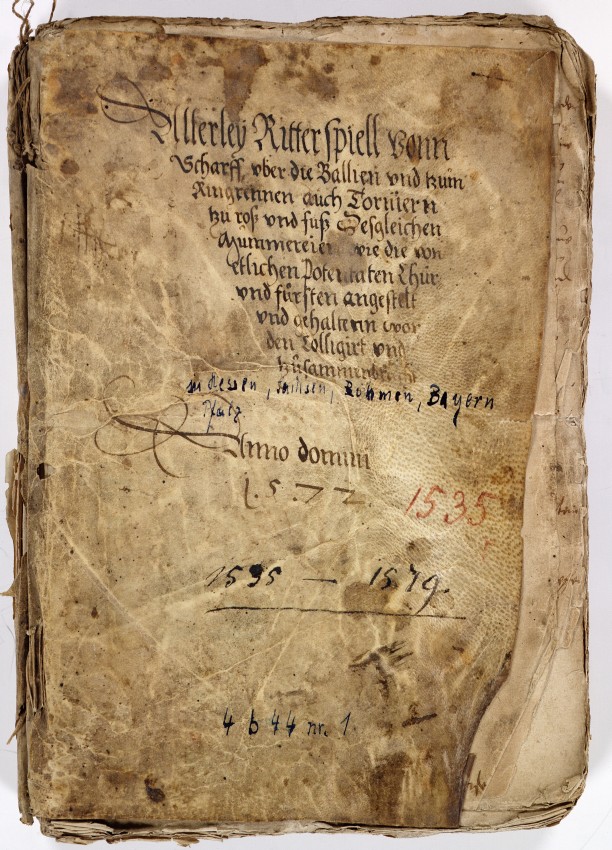 Allerley Ritterspiell vonn
Scharff, vber die Ballien vnd tzum
Ringrennen auch Tornüern
tzu roß vnd fuß Desgleichen
Mummereien wie die von
etlichen Potentaten Chür
vnd fürsten angestelt
vnd gehaltenn wor
den Colligirt vnd
tzusammen
in Hessen, Sachsen, Böhmen, Bayern
Pfalz
Anno domini
1.5.7.2.
1535
1535 — 1579.
4 b 44 nr. 1.